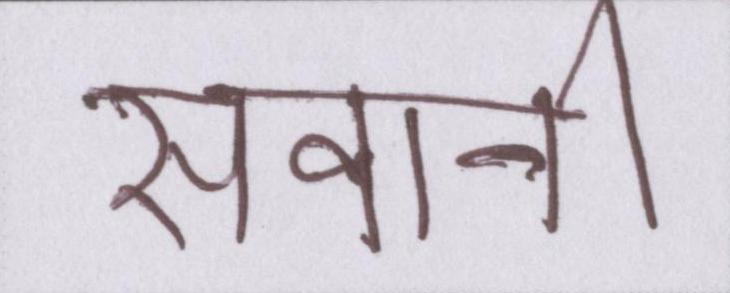 सवानी